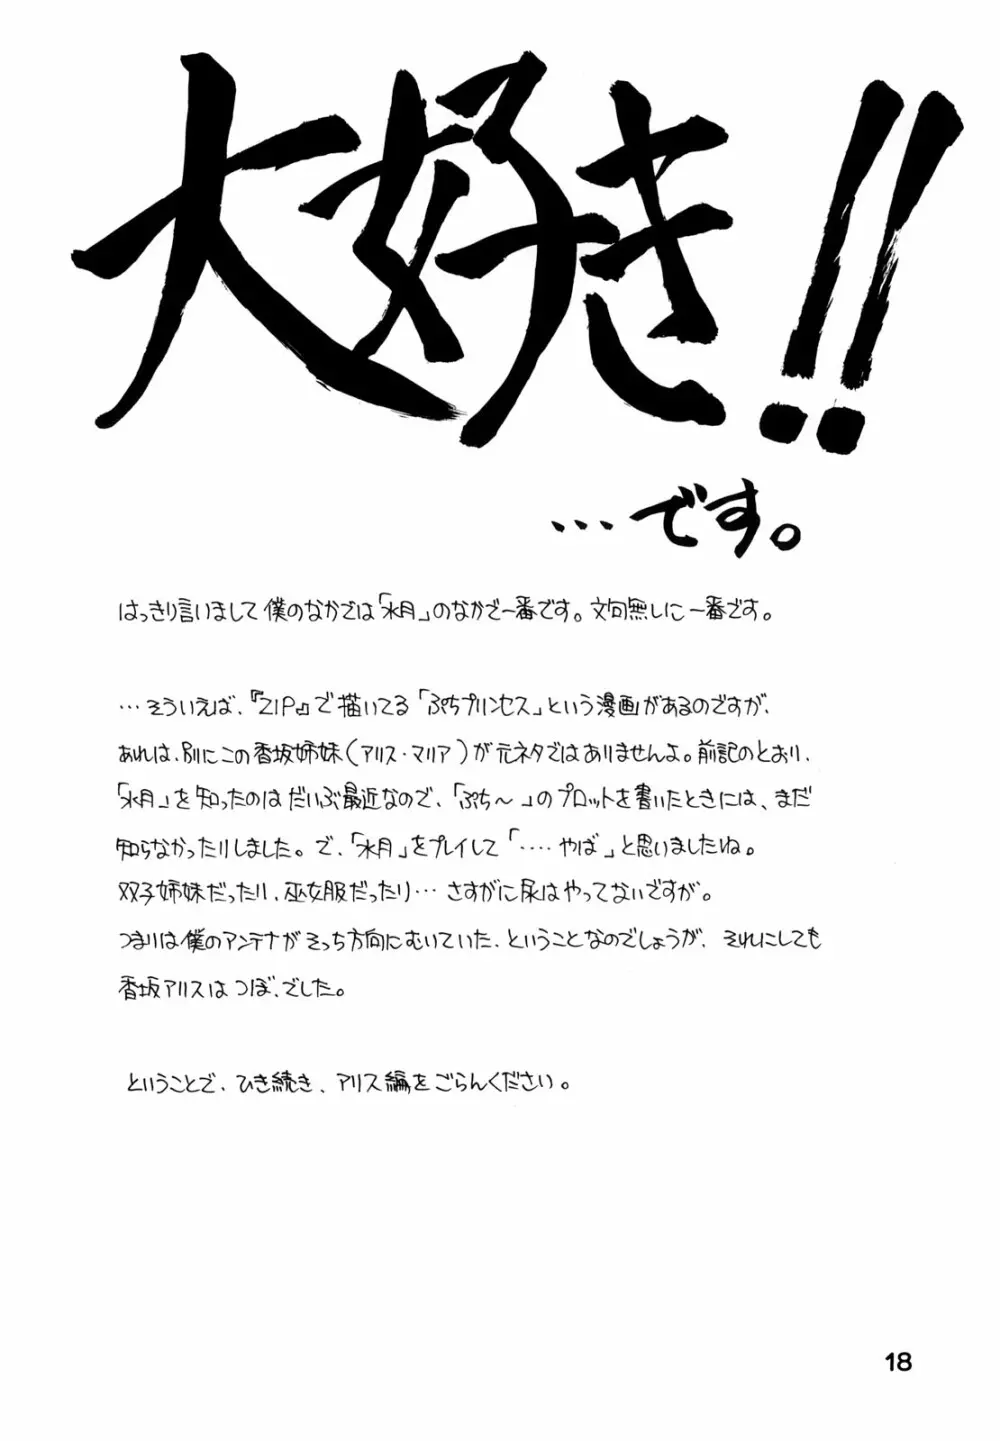 大好き!!
…です。
はっきり言いまして僕のなかでは「水月」のなかで一番です。文句無しに一番です。
…そういえば、『ZIP』で描いてる「ぷちプリンセス」という漫画があるのですが、
あれは、別にこの香坂姉妹(アリス・マリア)が元ネタではありませんよ。前記のとおり、
「水月」を知ったのはだいぶ最近なので、「ぷち〜」のプロットを書いたときには、まだ
知らなかったりしました。で、「水月」をプレイして「‥‥やば」と思いましたね。
双子姉妹だったり、巫女服だったり…さすがに尿はやってないですが。
つまりは僕のアンテナがそっち方向にむいていた、ということなのでしょうが、それにしても
香坂アリスはつぼ、でした。
ということで、ひき続き、アリス編をごらんください。
18